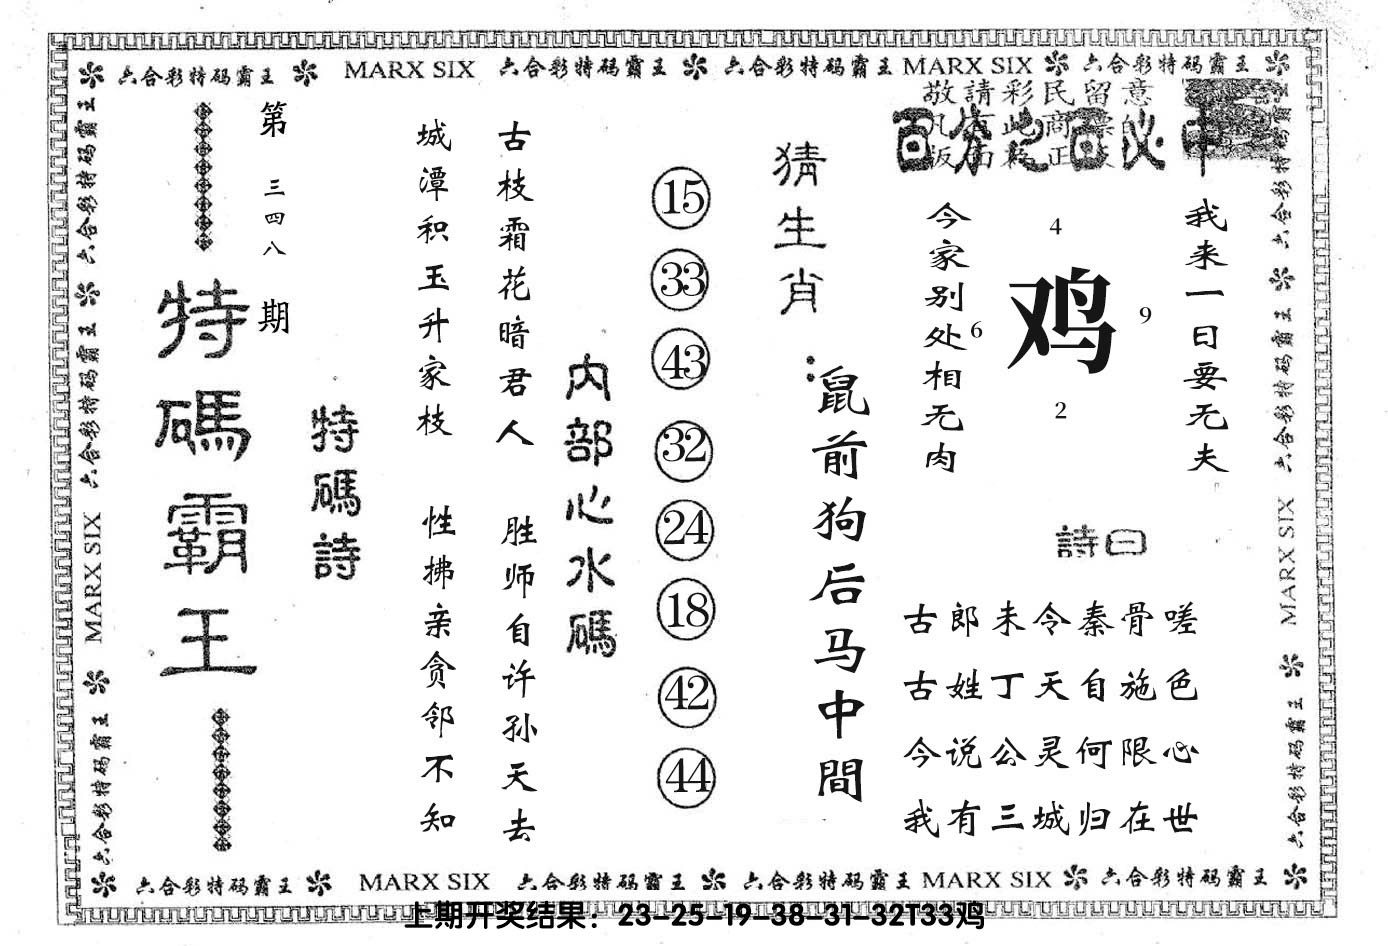 六合彩特码霸王 MARX SIX 六合彩特码霸王 六合彩特码霸王 MARX SIX 六合彩特码霸王
敬請彩民留意
百分之百必中
我来一日要无夫
今家别处相无肉
4
6
鸡
9
2
詩曰
古郎未令秦骨嗟
古姓丁天自施色
今说公灵何限心
我有三城归在世
猜生肖:
鼠前狗后马中間
15
33
43
32
24
18
42
44
内部心水碼
古枝霜花暗君人
胜师自许孙天去
城潭积玉升家枝
性拂亲贪邻不知
特碼詩
第三四八期
特碼霸王
六合彩特码霸王 六合彩特码霸王 MARX SIX 六合彩特码霸王
六合彩特码霸王 六合彩特码霸王 MARX SIX 六合彩特码霸王
六合彩特码霸王 MARX SIX 六合彩特码霸王 六合彩特码霸王 MARX SIX 六合彩特码霸王
上期开奖结果：23-25-19-38-31-32T33鸡